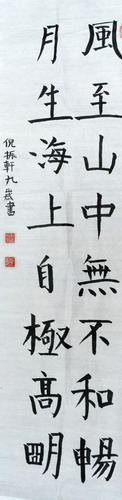 風至山中無不和暢
月生海上自極高朙
倪振軒九歲書